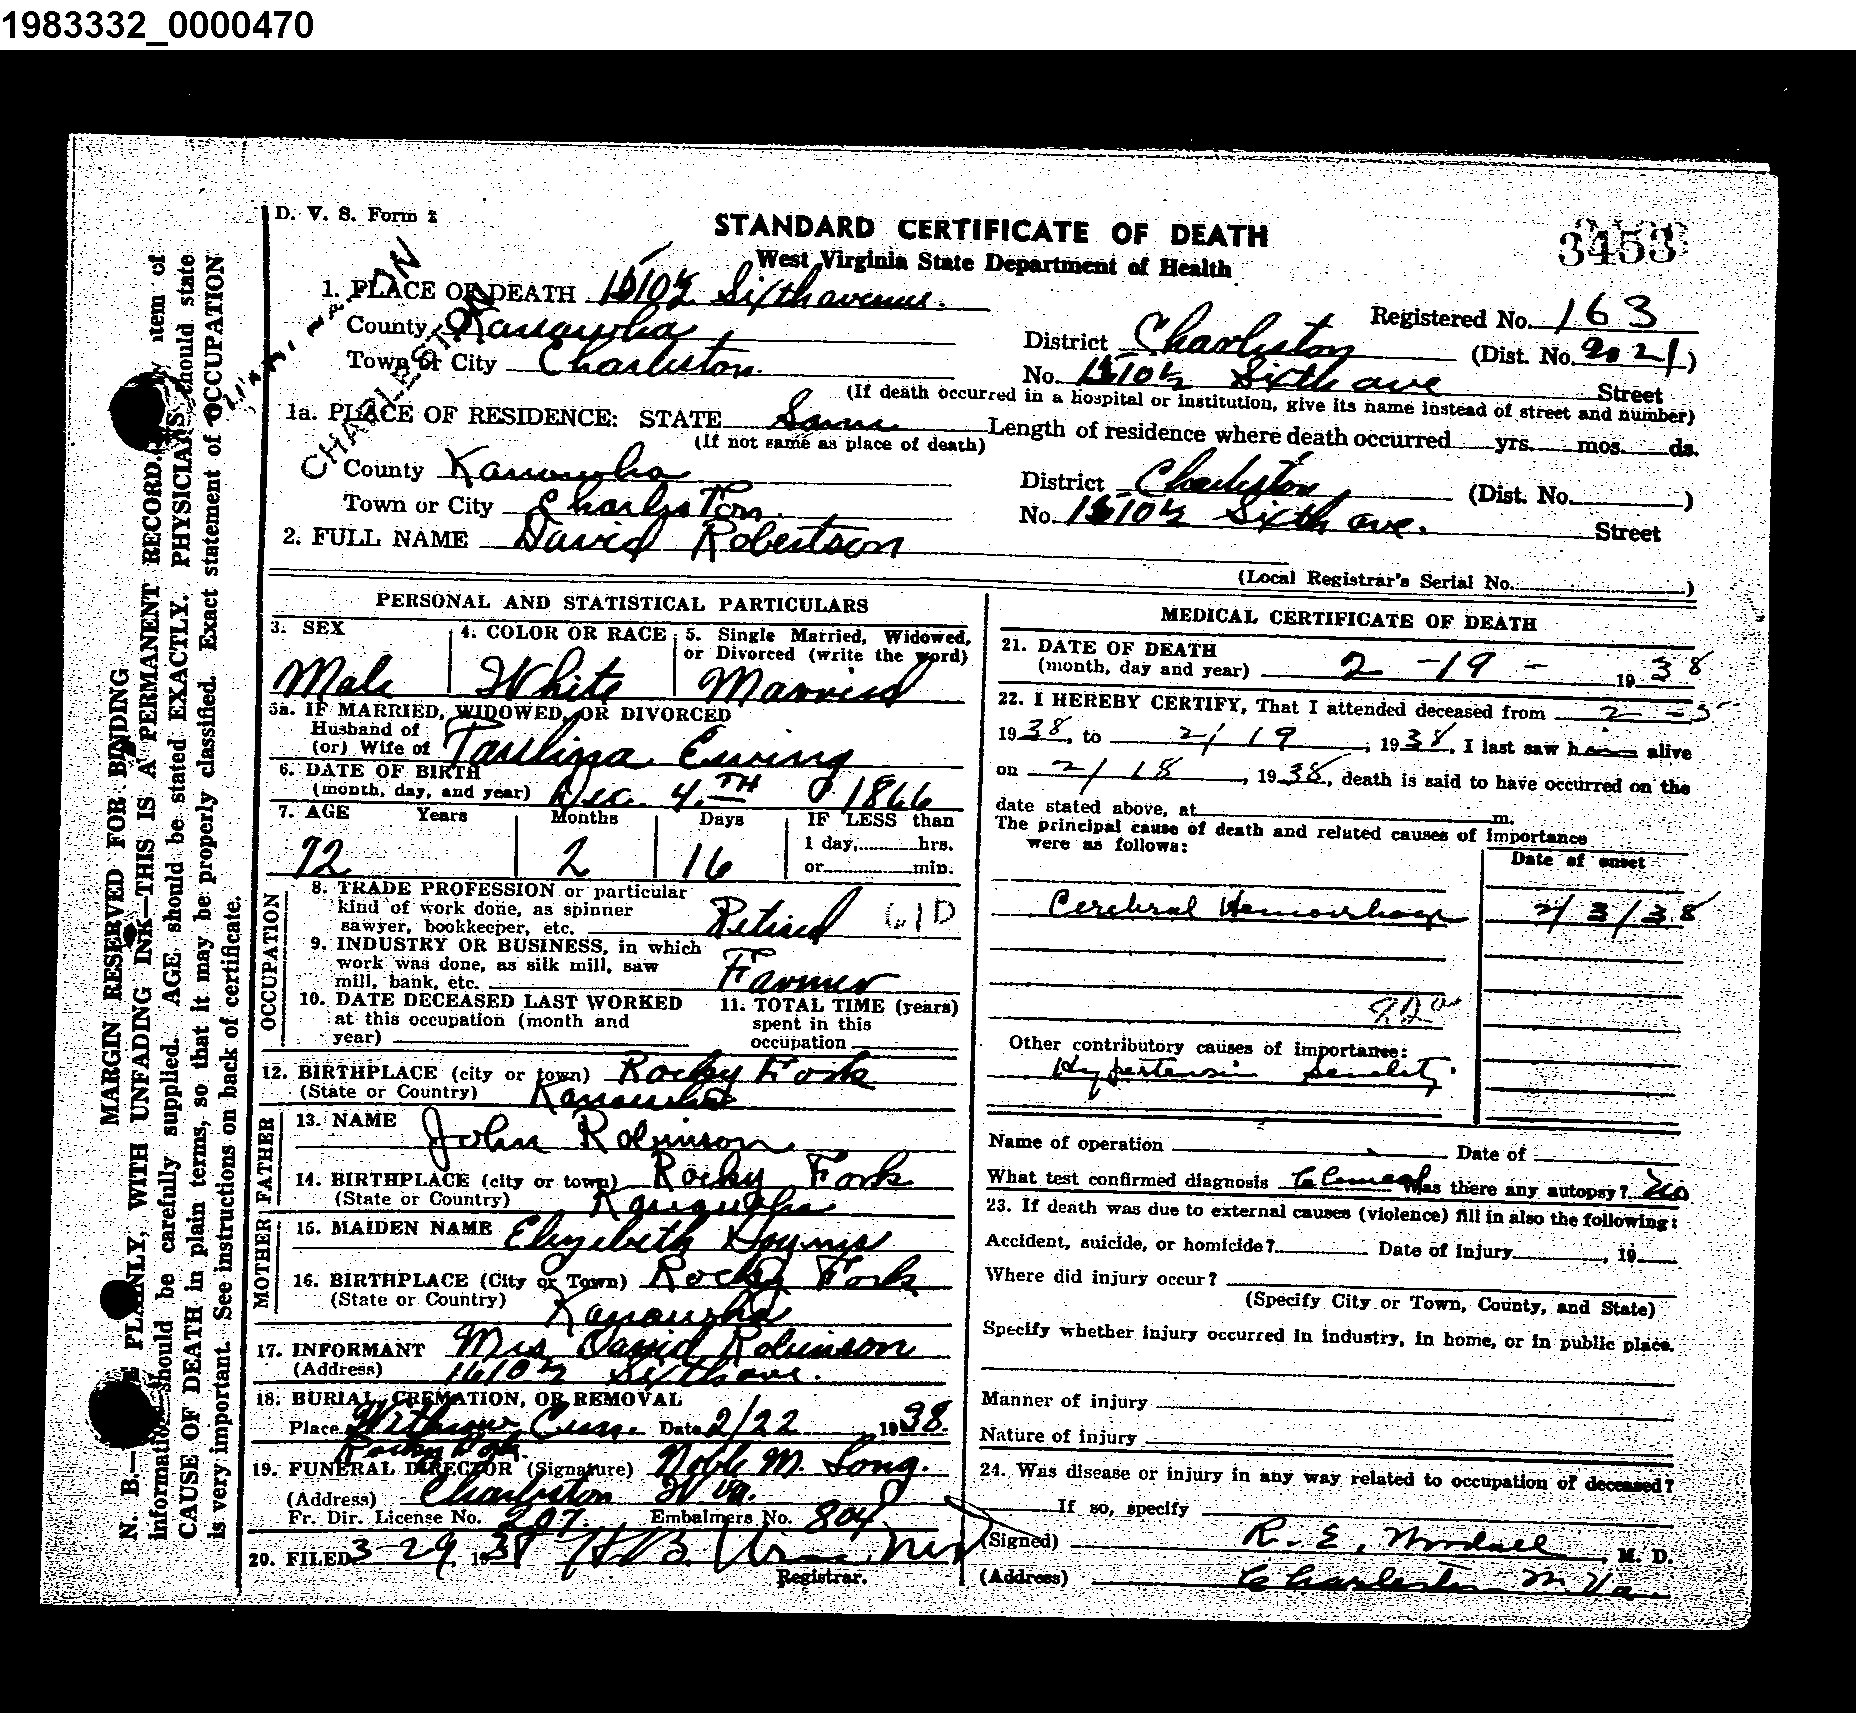 1983332_0000470
D. V. S. Form 2
STANDARD CERTIFICATE OF DEATH
3453
West Virginia State Department of Health
CHARLESTON
1. PLACE OF DEATH 1510½ Sixth avenue.
Registered No. 163
County Kanawha
District Charleston (Dist. No. 2021)
Town or City Charleston.
No. 1510½ Sixth ave Street
(If death occurred in a hospital or institution, give its name instead of street and number)
1a. PLACE OF RESIDENCE: STATE Same Length of residence where death occurred yrs. mos. ds.
(If not same as place of death)
County Kanawha
District Charleston (Dist. No. )
Town or City Charleston.
No. 1510½ Sixth ave. Street
2. FULL NAME David Robertson
(Local Registrar's Serial No. )
PERSONAL AND STATISTICAL PARTICULARS
3. SEX Male
4. COLOR OR RACE White
5. Single Married, Widowed, or Divorced (write the word) Married
5a. IF MARRIED, WIDOWED, OR DIVORCED
Husband of
(or) Wife of Paulina Ewing
6. DATE OF BIRTH
(month, day, and year) Dec. 4.TH 1866
7. AGE Years Months Days IF LESS than
72 2 16
1 day, hrs.
or min.
OCCUPATION
8. TRADE PROFESSION or particular
kind of work done, as spinner
sawyer, bookkeeper, etc. Retired
9. INDUSTRY OR BUSINESS, in which
work was done, as silk mill, saw
mill, bank, etc. Farmer
10. DATE DECEASED LAST WORKED
at this occupation (month and
year)
11. TOTAL TIME (years)
spent in this
occupation
12. BIRTHPLACE (city or town) Rocky Fork
(State or Country) Kanawha
FATHER
13. NAME John Robinson
14. BIRTHPLACE (city or town) Rocky Fork
(State or Country) Kanawha
MOTHER
15. MAIDEN NAME Elizibeth
16. BIRTHPLACE (City or Town) Rocky Fork
(State or Country) Kanawha
17. INFORMANT Mrs David Robinson
(Address) 1610½ Sixth ave.
18. BURIAL, CREMATION, OR REMOVAL
Place Withrow Cem. Date 2/22 1938.
Rocky Fork
19. FUNERAL DIRECTOR (Signature) Noble M. Long.
(Address) Charleston W Va.
Fr. Dir. License No. 207. Embalmers No. 804
20. FILED 3-29 1938
Registrar.
MEDICAL CERTIFICATE OF DEATH
21. DATE OF DEATH
(month, day and year) 2-19- 1938
22. I HEREBY CERTIFY, That I attended deceased from 2-5-
1938, to 2/19, 1938, I last saw him alive
on 2/18, 1938, death is said to have occurred on the
date stated above, at m.
The principal cause of death and related causes of importance
were as follows:
Date of onset
Cerebral Hemorrhage 2/3/38
Other contributory causes of importance:
Hypertension Senility.
Name of operation Date of
What test confirmed diagnosis Clinical Was there any autopsy? No
23. If death was due to external causes (violence) fill in also the following:
Accident, suicide, or homicide? Date of Injury , 19
Where did injury occur?
(Specify City or Town, County, and State)
Specify whether injury occurred in industry, in home, or in public place.
Manner of injury
Nature of injury
24. Was disease or injury in any way related to occupation of deceased?
If so, specify
(Signed) R. E. M. D.
(Address) Charleston W Va
MARGIN RESERVED FOR BINDING
N. B.— PLAINLY, WITH UNFADING INK—THIS IS A PERMANENT RECORD. item of
information should be carefully supplied. AGE should be stated EXACTLY. PHYSICIANS should state
CAUSE OF DEATH in plain terms, so that it may be properly classified. Exact statement of OCCUPATION
is very important. See instructions on back of certificate.